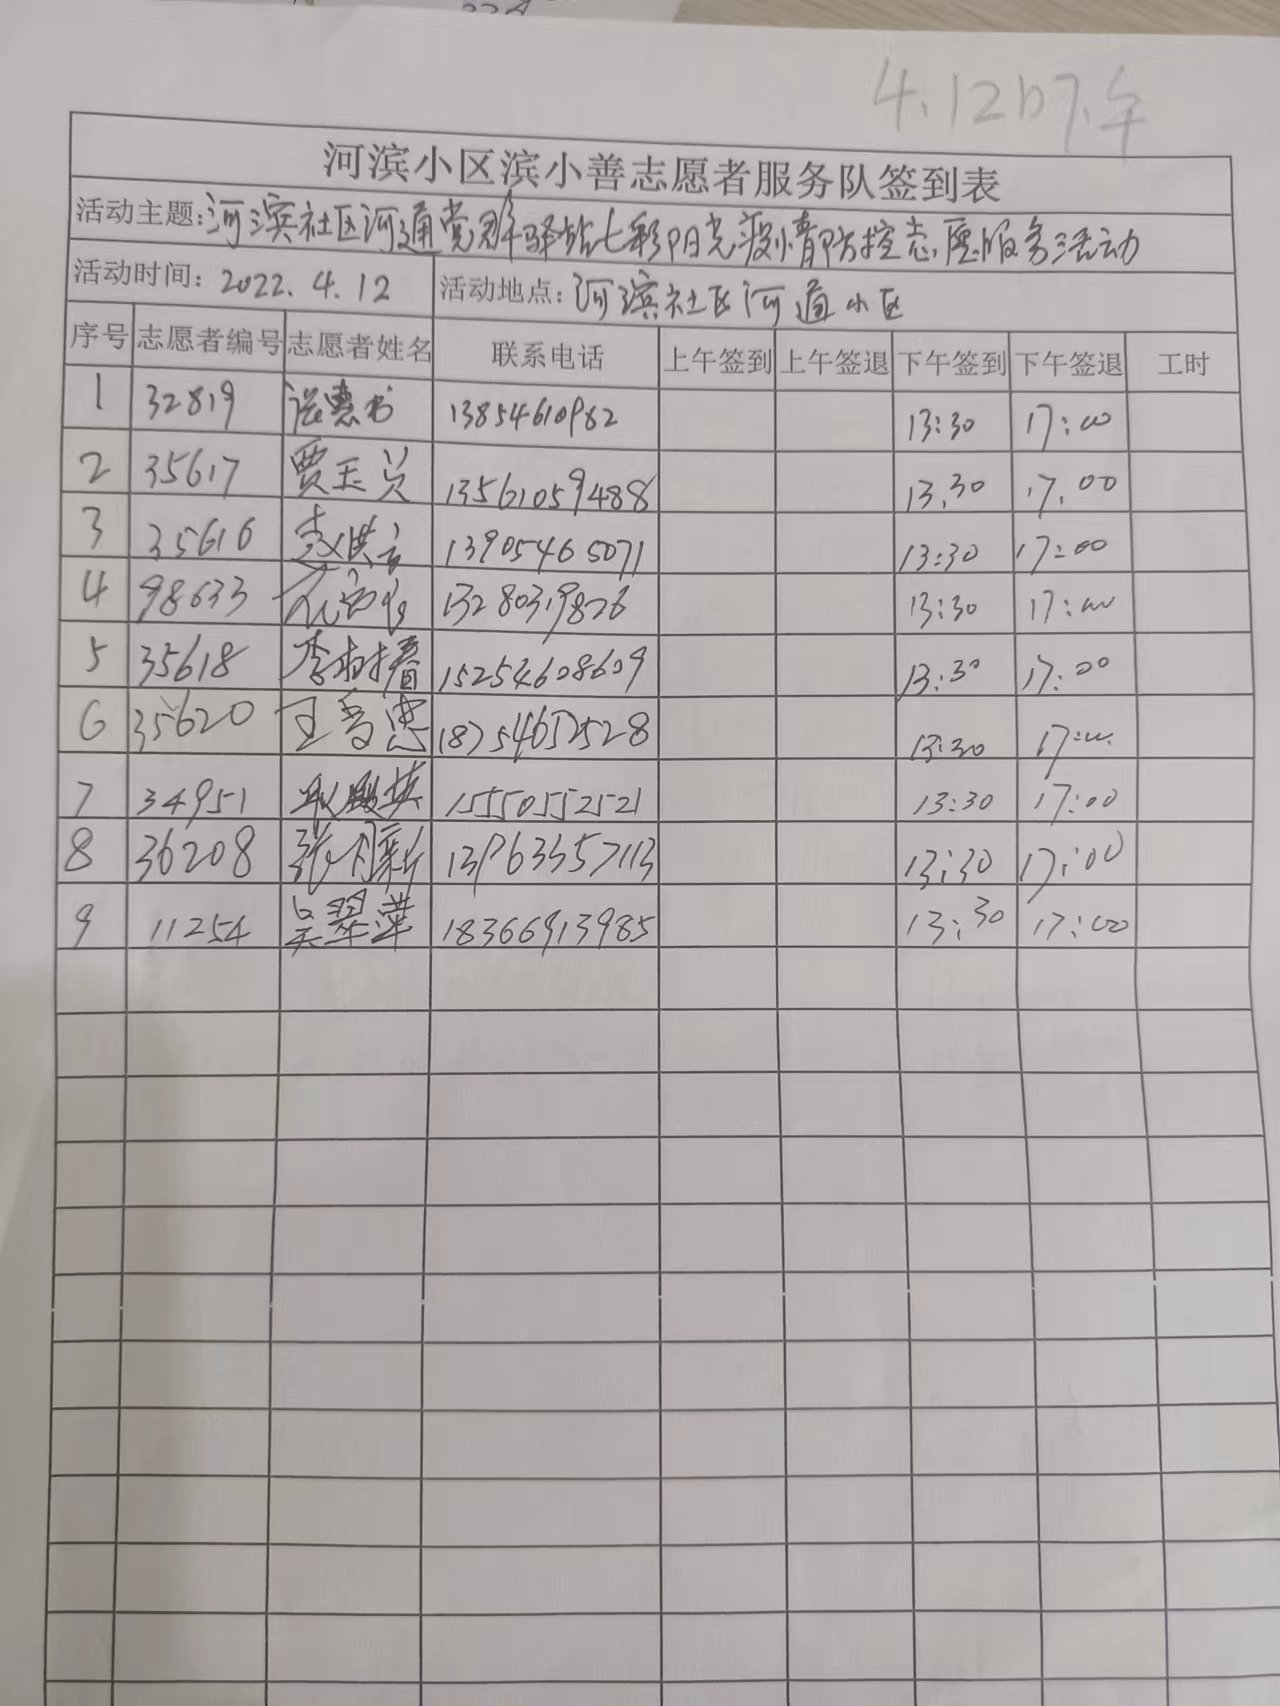 4.12日下午
河滨小区滨小善志愿者服务队签到表
活动主题:河滨社区河通党群驿站七彩阳光疫情防控志愿服务活动
活动时间: 2022.4.12 活动地点:河滨社区河道小区
序号 志愿者编号 志愿者姓名 联系电话 上午签到 上午签退 下午签到 下午签退 工时
1 32819 13854610982 13:30 17:00
2 35617 贾玉 13561059488 13.30 17.00
3 35616 13905465071 13:30 17:00
4 98633 13280319826 13:30 17:00
5 35618 李树春 15254608609 13:30 17:00
6 35620 王秀忠 18754652528 13:30 17:00
7 34951 15550552521 13:30 17:00
8 36208 张月新 13963357113 13:30 17:00
9 11254 吴翠萍 18366913985 13:30 17:00